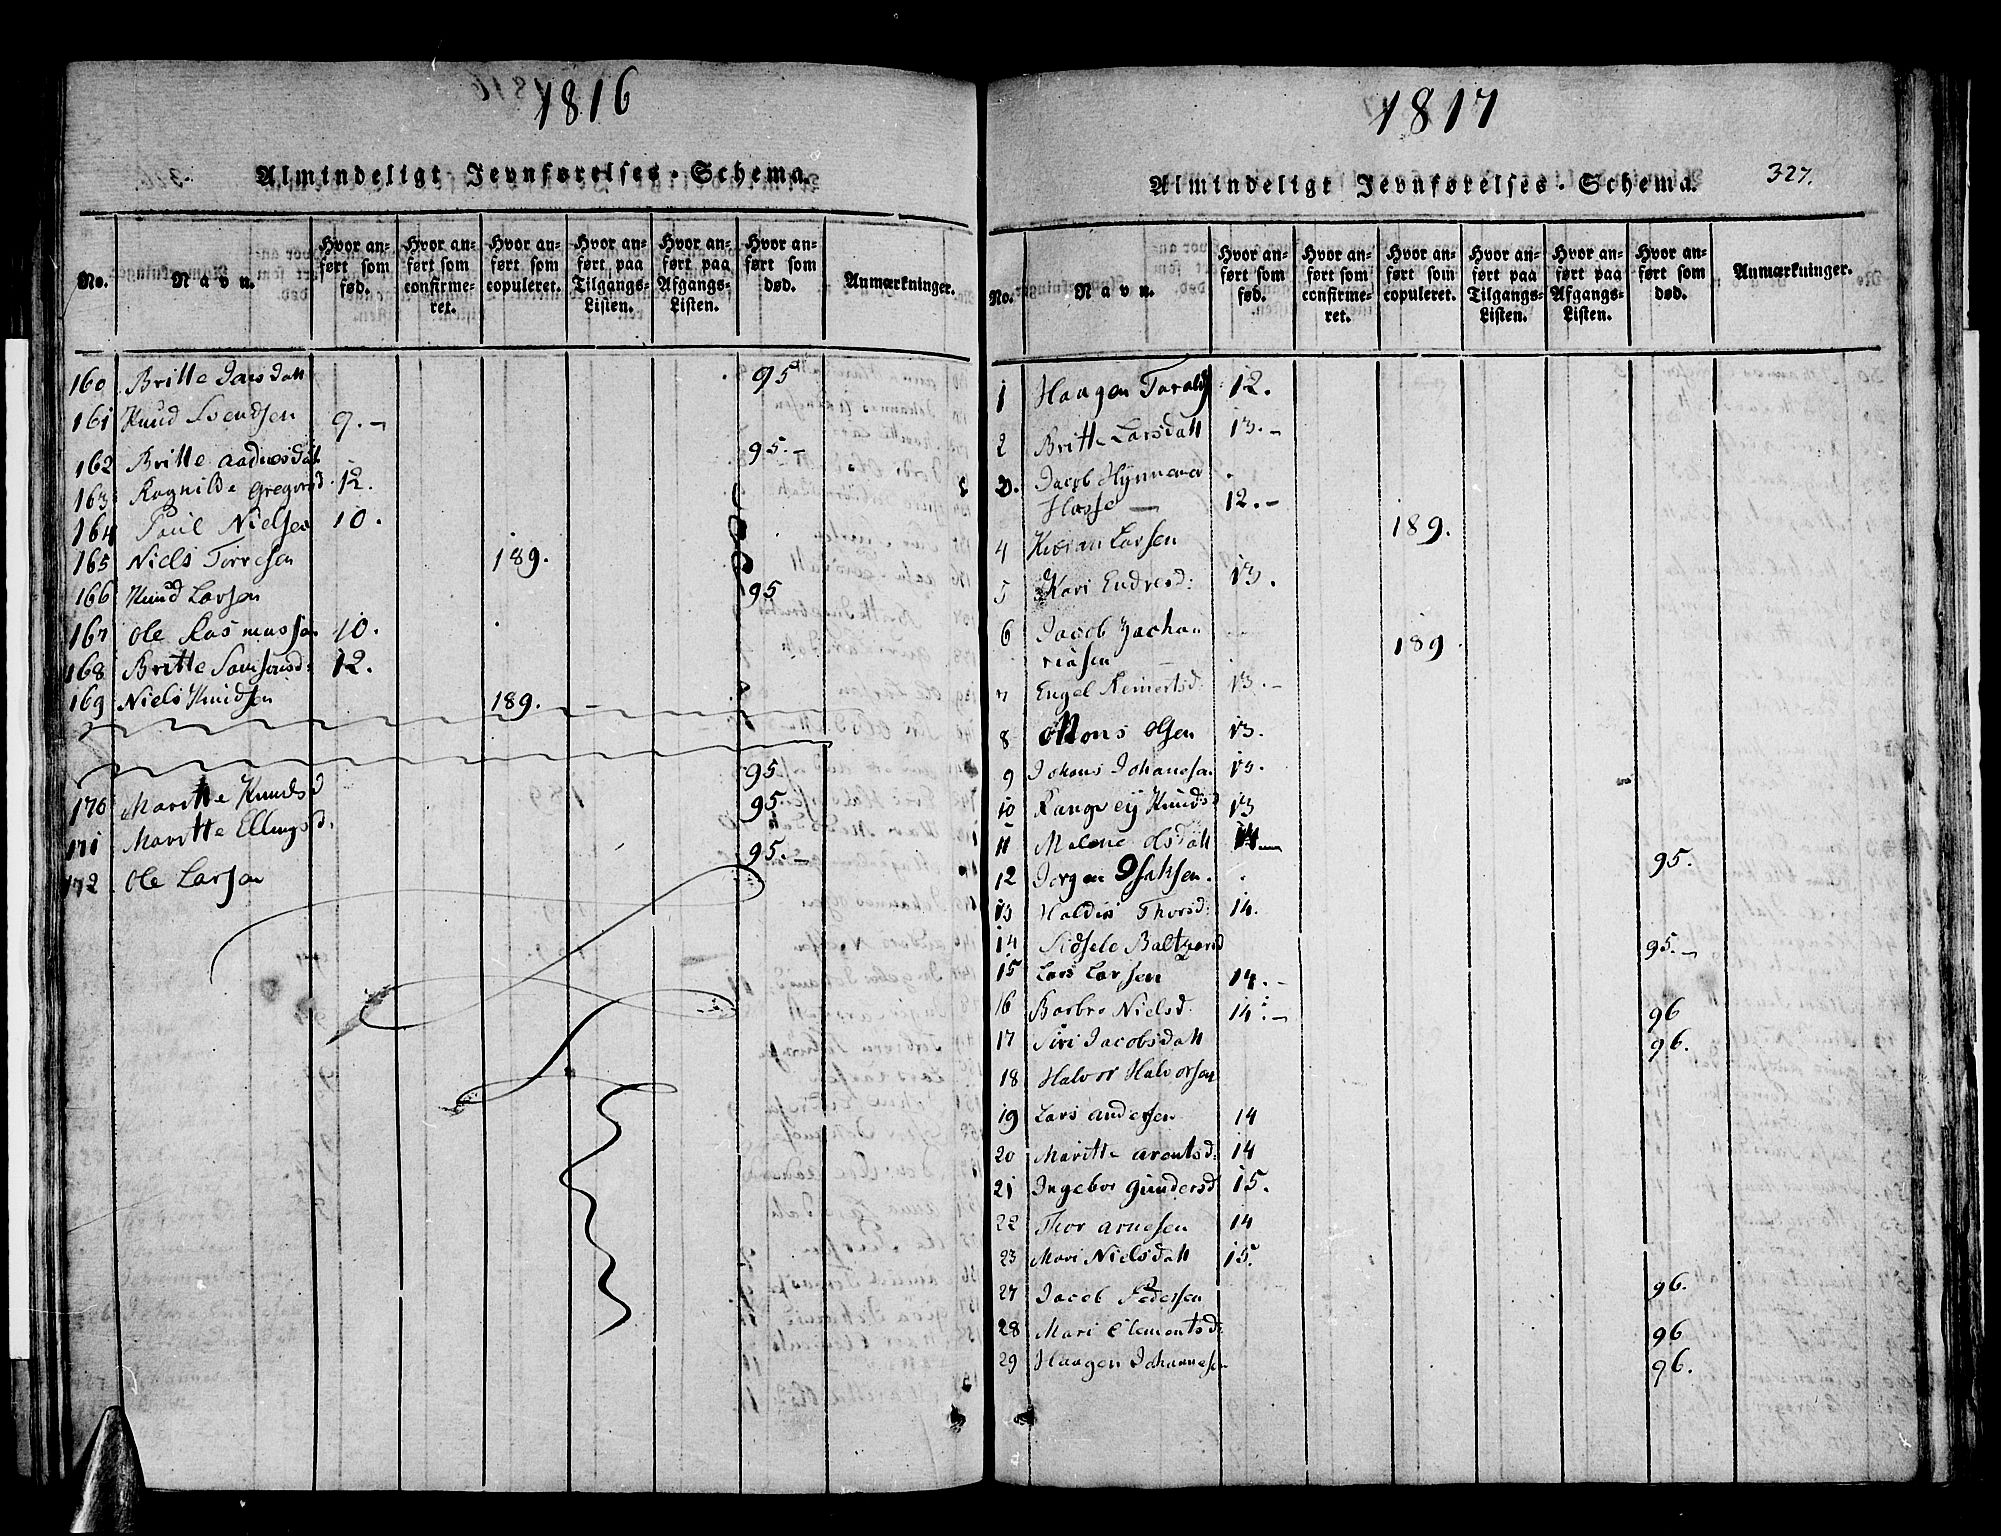 1816
Almindeligt Jevnførelses-Schema.
No. Navn. Hvor anført som fød. Hvor anført som confirmeret. Hvor anført som copuleret. Hvor anført paa Tilgangs-Listen. Hvor anført paa Afgangs-Listen. Hvor anført som død. Anmærkninger.
160 Britte Larsdatt 95
161 Knud Svendsen 9.-
162 Britte Aadnesdat 95.-
163 Ragnilde Gregorsd. 12.
164 Poul Nielsen 10.
165 Niels Torresen 189.
166 Knud Larsen 95
167 Ole Rasmussen 10.
168 Britte Samsonsd: 12.
169 Niels Knudsen 189.-
170 Maritte Knudsd 95
171 Maritte Ellingsd. 95.
172 Ole Larsen 95.-
1817
Almindeligt Jevnførelses-Schema. 327.
No. Navn. Hvor anført som fød. Hvor anført som confirmeret. Hvor anført som copuleret. Hvor anført paa Tilgangs-Listen. Hvor anført paa Afgangs-Listen. Hvor anført som død. Anmærkninger.
1 Haagen 12.
2 Britte Larsdatt 13.-
3. Jacob
12.-
4 Larsen 189.
5 Kari Endresd: 13.
6 Jacob Zacha
riasen 189.
7 Engel Reinertsd. 13.-
8 Mons Olsen 13.
9 Johans Johanesen 13.
10 Rangvey Knudsd 13
11 Malene Olsdatt 14
12 Jørgen Isaksen. 95.
13 Thorsd: 14.
14 Sidsele 95.-
15 Lars Larsen 14.-
16 Barbro Nielsd. 14.-
17 Siri Jacobsdatt 96
18 Halvor Halvorsen 96.
19 Lars Andersen 14
20 Maritte Arentsd: 14
21 Ingebor Gundersd 15.
22 Thor Arnesen 14
23 Mari Nielsdatt 15.
27 Jacob Pedersen 96.
28 Mari Clementsd: 96
29 Haagen Johannesen 96.